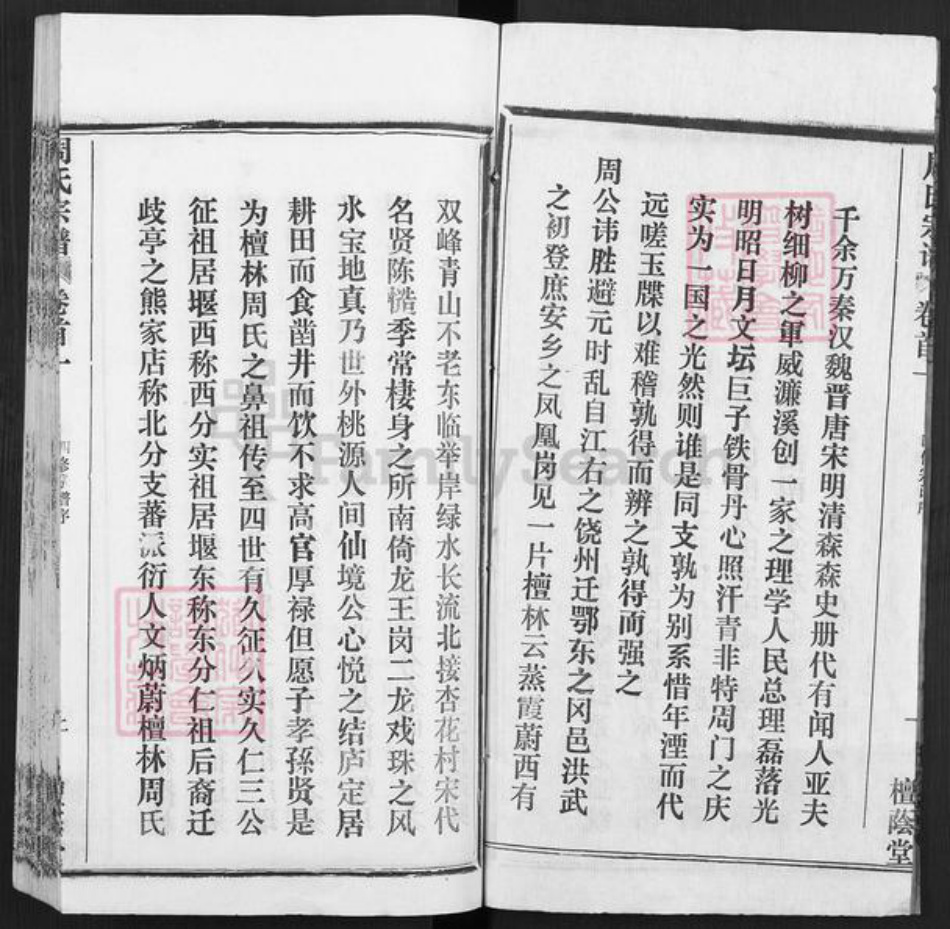 千余万秦汉魏晋唐宋明清森森史册代有闻人亚夫
树细柳之軍威濂溪创一家之理学人民总理磊落光
明昭日月文坛巨子铁骨丹心照汗青非特周门之庆
实为一国之光然则谁是同支孰为别系惜年湮而代
远嗟玉牒以难稽孰得而辨之孰得而强之
周公讳胜避元时乱自江右之饶州迁鄂东之冈邑洪武
之初登庶安乡之凤凰岗见一片檀林云蒸霞蔚西有
檀蔭堂
双峰青山不老东临举岸绿水长流北接杏花村宋代
名贤陈慥季常棲身之所南倚龙王岗二龙戏珠之风
水宝地真乃世外桃源人间仙境公心悦之结庐定居
耕田而食凿井而饮不求高官厚禄但愿子孝孫贤是
为檀林周氏之鼻祖传至四世有久征久实久仁三公
征祖居堰西称西分实祖居堰东称东分仁祖后裔迁
歧亭之熊家店称北分支蕃派衍人文炳蔚檀林周氏
周氏宗谱 卷首一
四修宗谱序
FamilySearch